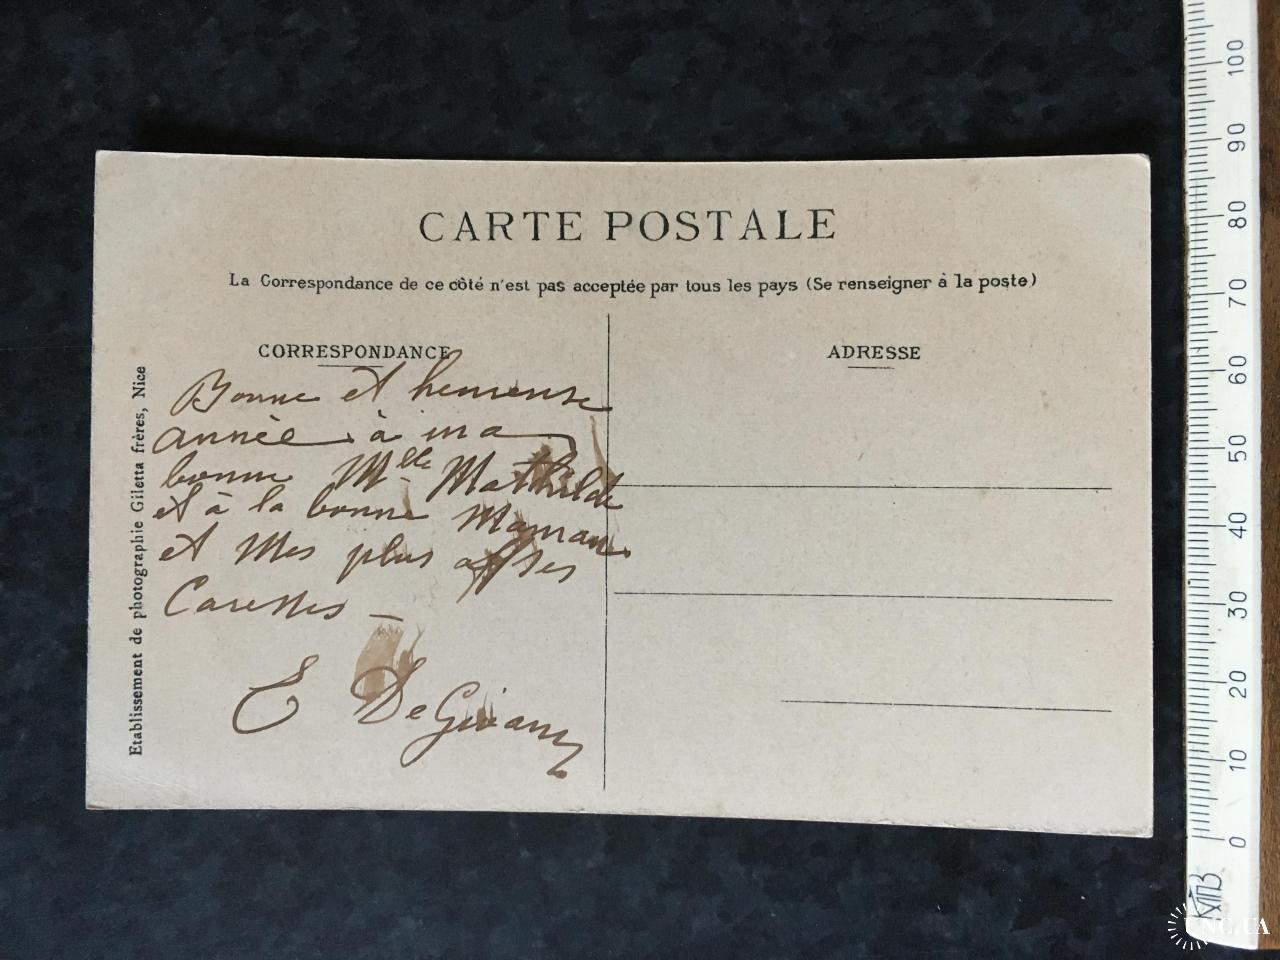 CARTE POSTALE
La Correspondance de ce côté n'est pas acceptée par tous les pays (Se renseigner à la poste)
CORRESPONDANCE
Bonne et heureuse
année à ma
bonne Mlle Mathilde
et à la bonne Maman
et mes plus affses
Caresses –
E De
ADRESSE
Etablissement de photographie Giletta frères, Nice
100
90
80
70
60
50
40
30
20
10
0
UNC.UA